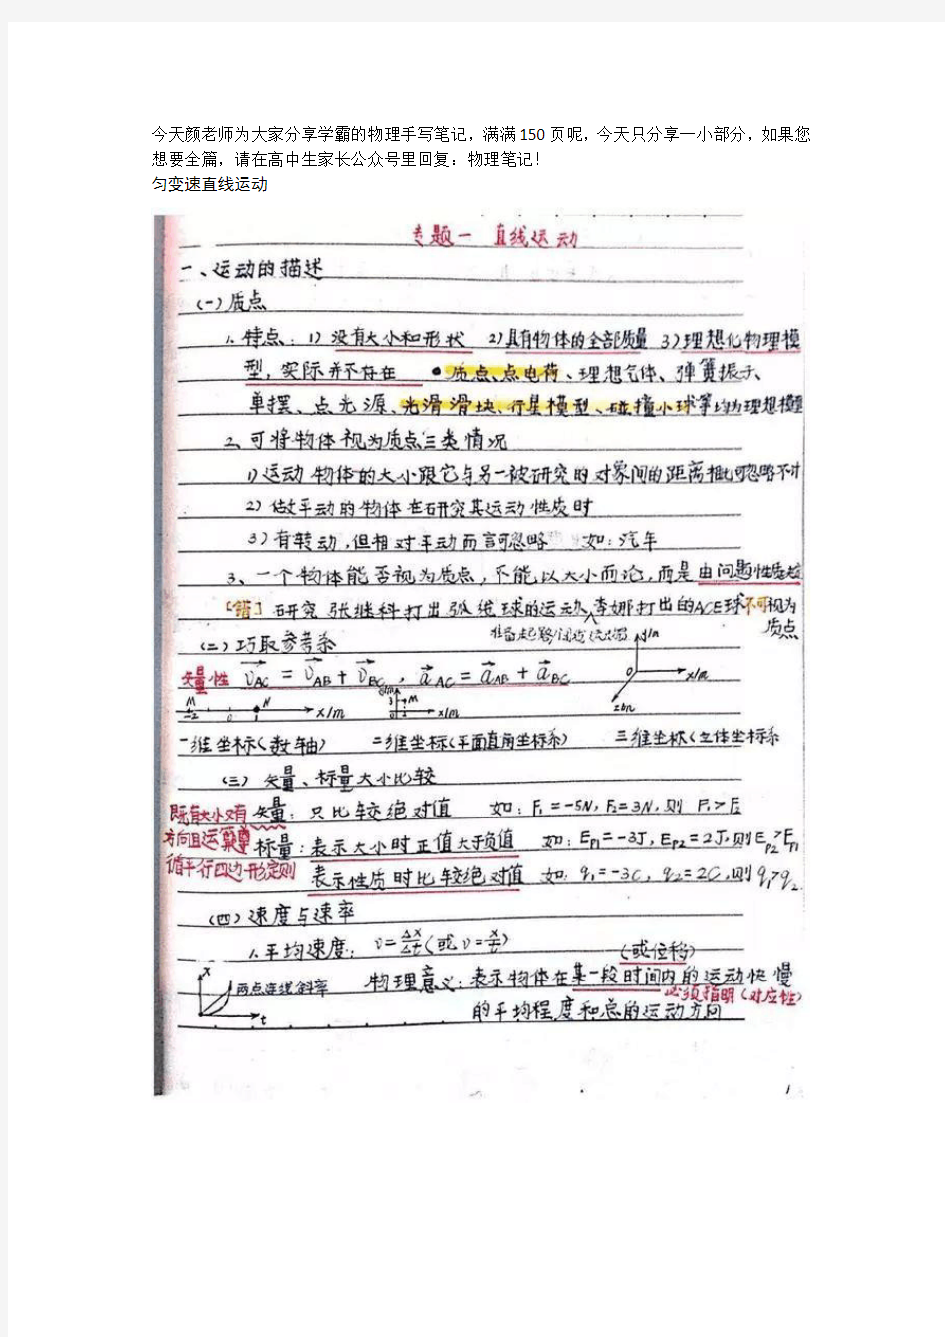 今天颜老师为大家分享学霸的物理手写笔记，满满150页呢，今天只分享一小部分，如果您
想要全篇，请在高中生家长公众号里回复：物理笔记！
匀变速直线运动
专题一 直线运动
一、运动的描述
(一)质点
1、特点：1)没有大小和形状 2)具有物体的全部质量 3)理想化物理模
型，实际并不存在 ●质点、点电荷、理想气体、弹簧振子、
单摆、点光源、光滑滑块、行星模型、碰撞小球等均为理想模型
2、可将物体视为质点三类情况
1)运动物体的大小跟它与另一被研究的对象间的距离相比可忽略不计
2)做平动的物体在研究其运动性质时
3)有转动，但相对平动而言可忽略 如：汽车
3、一个物体能否视为质点，不能以大小而论，而是由问题性质定
[错] 研究张继科打出弧线球的运动、李娜打出的ACE球不可视为
质点
(二)巧取参考系 y/m
矢量性 v⃗AC = v⃗AB + v⃗BC , a⃗AC = a⃗AB + a⃗BC 0 x/m
M -2 0 1 N x/m y/m 3 M 0 x/m z/m
一维坐标(数轴) 二维坐标(平面直角坐标系) 三维坐标(立体坐标系
(三)矢量、标量大小比较
既有大小又有 矢量：只比较绝对值 如：F₁=-5N，F₂=3N，则 F₁>F₂
方向且运算遵 标量：表示大小时正值大于负值 如：Ep1=-3J，Ep2=2J，则Ep2>Ep1
循平行四边形定则 表示性质时比较绝对值 如：q₁=-3C，q₂=2C，则q₁>q₂
(四)速度与速率
1、平均速度：v=Δx/Δt(或v=x/t)
(或位移)
x 两点连线斜率 t 物理意义：表示物体在某一段时间内的运动快慢
必须指明(对应性)
的平均程度和总的运动方向
1